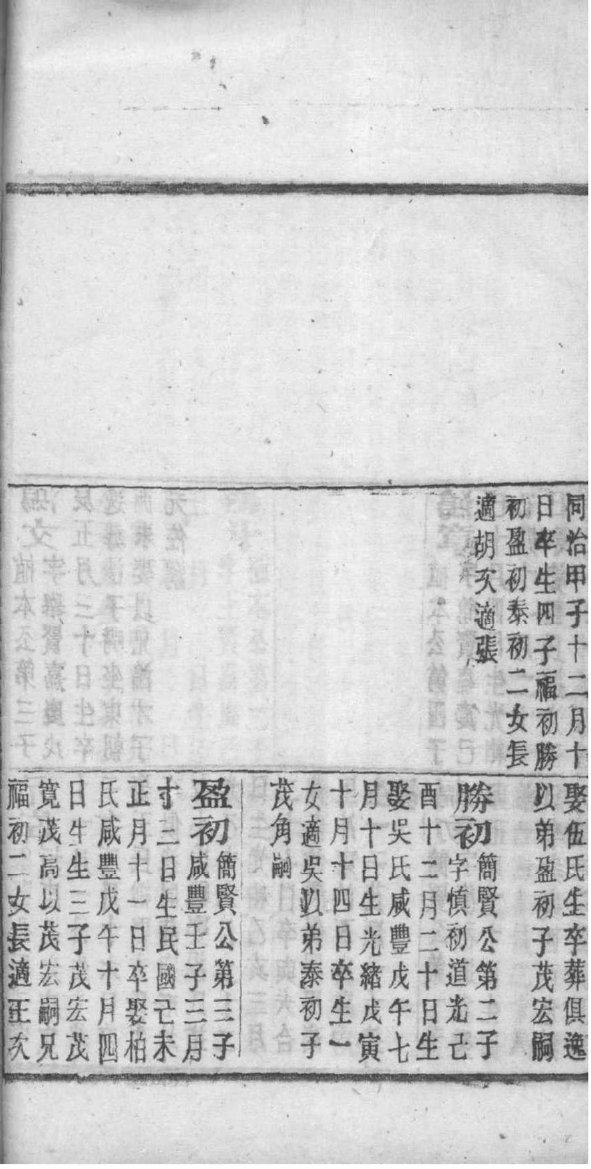 同治甲子十二月十
日卒生四子福初勝
初盈初泰初二女長
適胡次適張
娶伍氏生卒葬俱逸
以弟盈初子茂宏嗣
勝初簡賢公第二子
字慎初道光己
酉十二月二十日生
娶吳氏咸豐戊午七
月十日生光緒戊寅
十月十四日卒生一
女適吳以弟泰初子
茂角嗣
盈初簡賢公第三子
咸豐壬子三月
十三日生民國己未
正月十一日卒娶柏
氏咸豐戊午十月四
日生生三子茂宏茂
寬茂高以茂宏嗣兄
福初二女長適王次